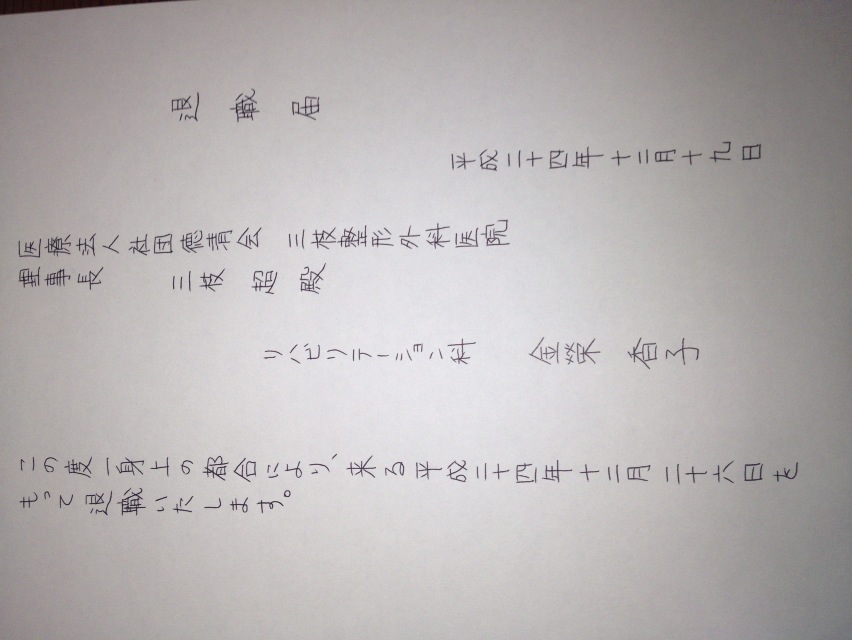 退職届
平成二十四年十二月十九日
医療法人社団徳清会 三枝整形外科医院
理事長 三枝 超 殿
リハビリテーション科 金築 杏子
この度一身上の都合により、来る平成二十四年十二月二十六日を
もって退職いたします。